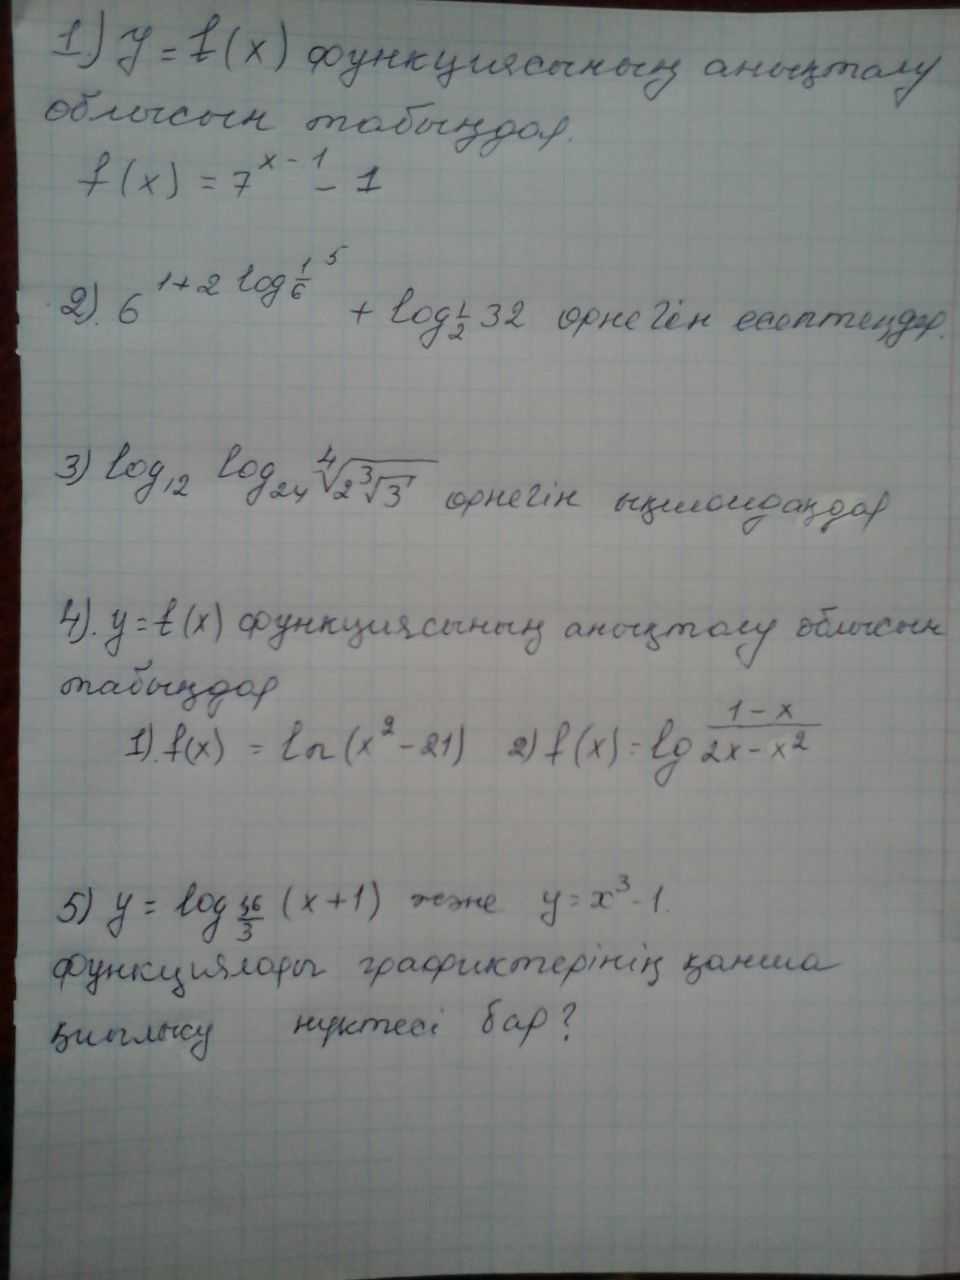 1) y = f(x) функциясының анықталу
облысын табыңдар.
f(x) = 7^{x-1} - 1
2). 6^{1+2 log_{1/6} 5} + log_{1/2} 32 өрнегін есептеңдер.
3) log_{12} log_{24} \sqrt[4]{2\sqrt[3]{3}} өрнегін ықшамдаңдар
4). y = f(x) функциясының анықталу облысын
табыңдар
1). f(x) = ln(x^2 - 21) 2) f(x) = lg \frac{1-x}{2x-x^2}
5) y = log_{36/3} (x+1) және y = x^3 - 1.
функциялары графиктерінің қанша
қиылысу нүктесі бар?